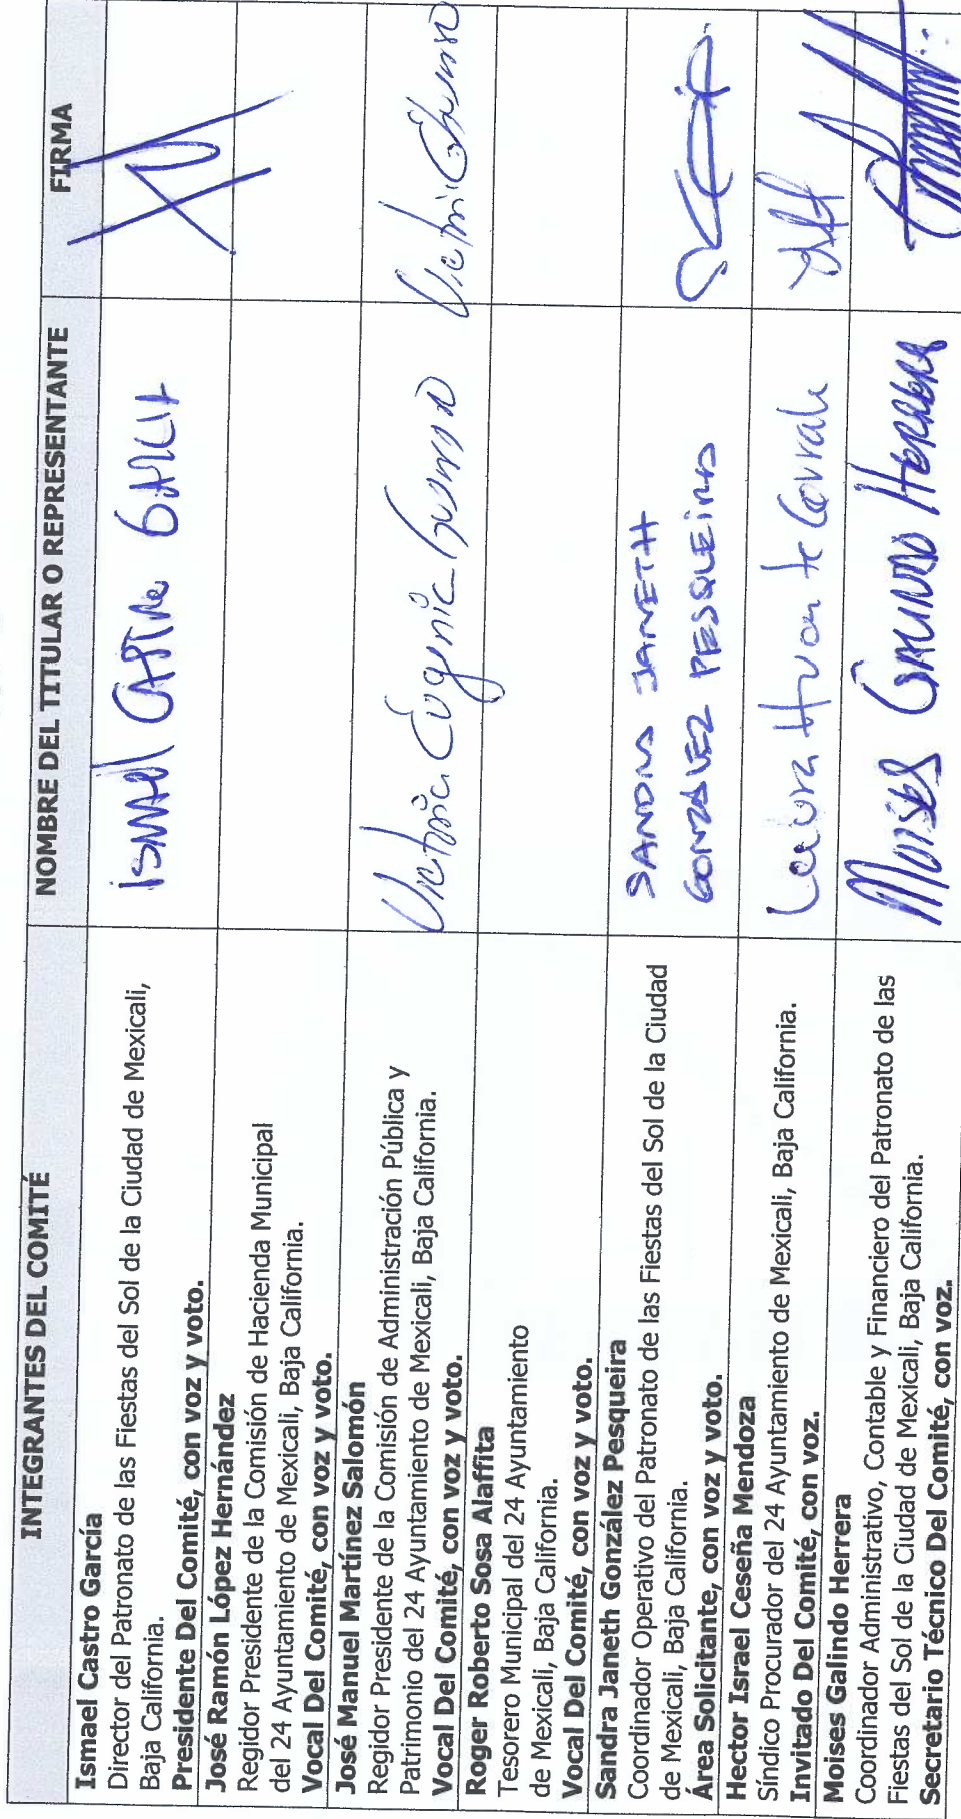 INTEGRANTES DEL COMITÉ
NOMBRE DEL TITULAR O REPRESENTANTE
FIRMA
Ismael Castro García
Director del Patronato de las Fiestas del Sol de la Ciudad de Mexicali,
Baja California.
Presidente Del Comité, con voz y voto.
ismael CASTRO GARCIA
José Ramón López Hernández
Regidor Presidente de la Comisión de Hacienda Municipal
del 24 Ayuntamiento de Mexicali, Baja California.
Vocal Del Comité, con voz y voto.
José Manuel Martínez Salomón
Regidor Presidente de la Comisión de Administración Pública y
Patrimonio del 24 Ayuntamiento de Mexicali, Baja California.
Vocal Del Comité, con voz y voto.
Victoria Eugenia
Roger Roberto Sosa Alaffita
Tesorero Municipal del 24 Ayuntamiento
de Mexicali, Baja California.
Vocal Del Comité, con voz y voto.
Sandra Janeth González Pesqueira
Coordinador Operativo del Patronato de las Fiestas del Sol de la Ciudad
de Mexicali, Baja California.
Área Solicitante, con voz y voto.
SANDRA JANETH
GONZALEZ PESQUEIRA
Hector Israel Ceseña Mendoza
Síndico Procurador del 24 Ayuntamiento de Mexicali, Baja California.
Invitado Del Comité, con voz.
Laura
Moises Galindo Herrera
Coordinador Administrativo, Contable y Financiero del Patronato de las
Fiestas del Sol de la Ciudad de Mexicali, Baja California.
Secretario Técnico Del Comité, con voz.
MOISES GALINDO HERRERA